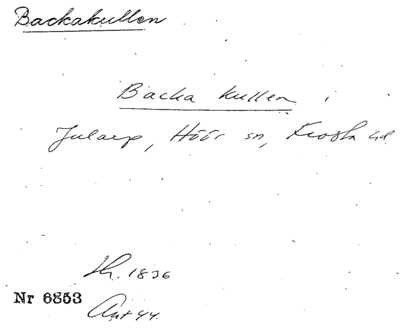 Backakullen
Backa kullen i
Julaep, Höör sn, Frosta hd
Hr. 1836
Nr 6853
Ant 44.